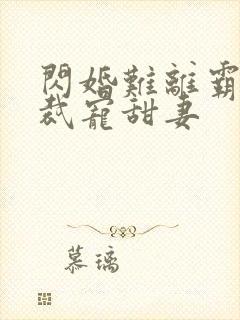 閃婚難離霸
裁寵甜妻
慕璃